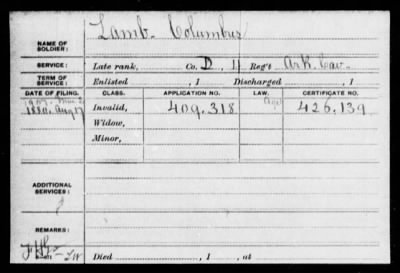 Lamb Columbus
NAME OF SOLDIER:
SERVICE: Late rank, Co. D, 4 Reg't Ark. Cav.
TERM OF SERVICE: Enlisted , 1 Discharged , 1
DATE OF FILING. CLASS. APPLICATION NO. LAW. CERTIFICATE NO.
1880. Aug 17 Invalid, 409.318 426.139
Widow,
Minor,
ADDITIONAL SERVICES:
REMARKS:
Died , 1 , at